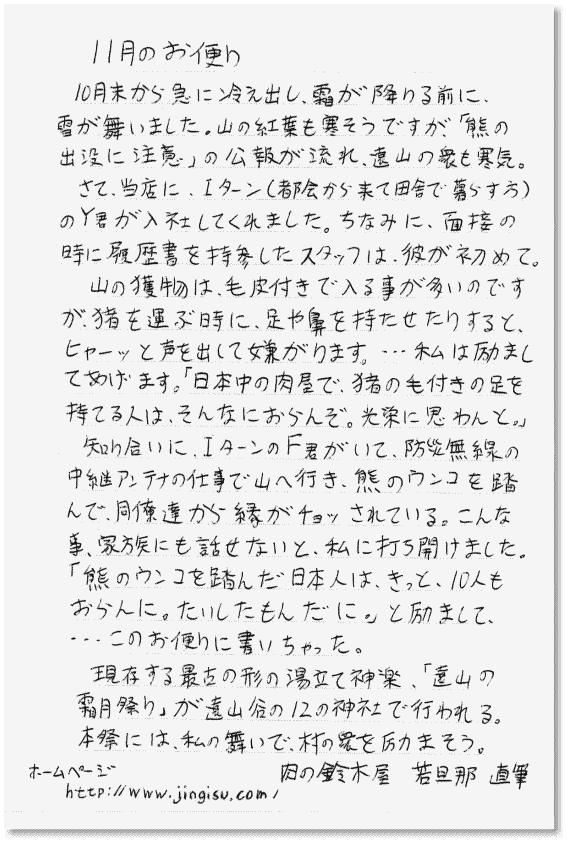 11月のお便り
10月末から急に冷え出し、霜が降りる前に、
雪が舞いました。山の紅葉も寒そうですが、「熊の
出没に注意」の公報が流れ、遠山の衆も寒気。
さて、当店に、Iターン(都会から来て田舎で暮らす方)
のY君が入社してくれました。ちなみに、面接の
時に履歴書を持参したスタッフは、彼が初めて。
山の獲物は、毛皮付きで入る事が多いのです
が、猪を運ぶ時に、足や鼻を持たせたりすると、
ヒャーッと声を出して嫌がります。…私は励まし
てあげます。「日本中の肉屋で、猪の毛付きの足を
持てる人は、そんなにおらんぞ。光栄に思わんと。」
知り合いに、IターンのF君がいて、防災無線の
中継アンテナの仕事で山へ行き、熊のウンコを踏
んで、同僚達から縁がチョッされている。こんな
事、家族にも話せないと、私に打ち開けました。
「熊のウンコを踏んだ日本人は、きっと、10人も
おらんに。たいしたもんだに。」と励まして、
…このお便りに書いちゃった。
現存する最古の形の湯立て神楽、「遠山の
霜月祭り」が遠山谷の12の神社で行われる。
本祭には、私の舞いで、村の衆を励まそう。
肉の鈴木屋 若旦那 直筆
ホームページ
http://www.jingisu.com/